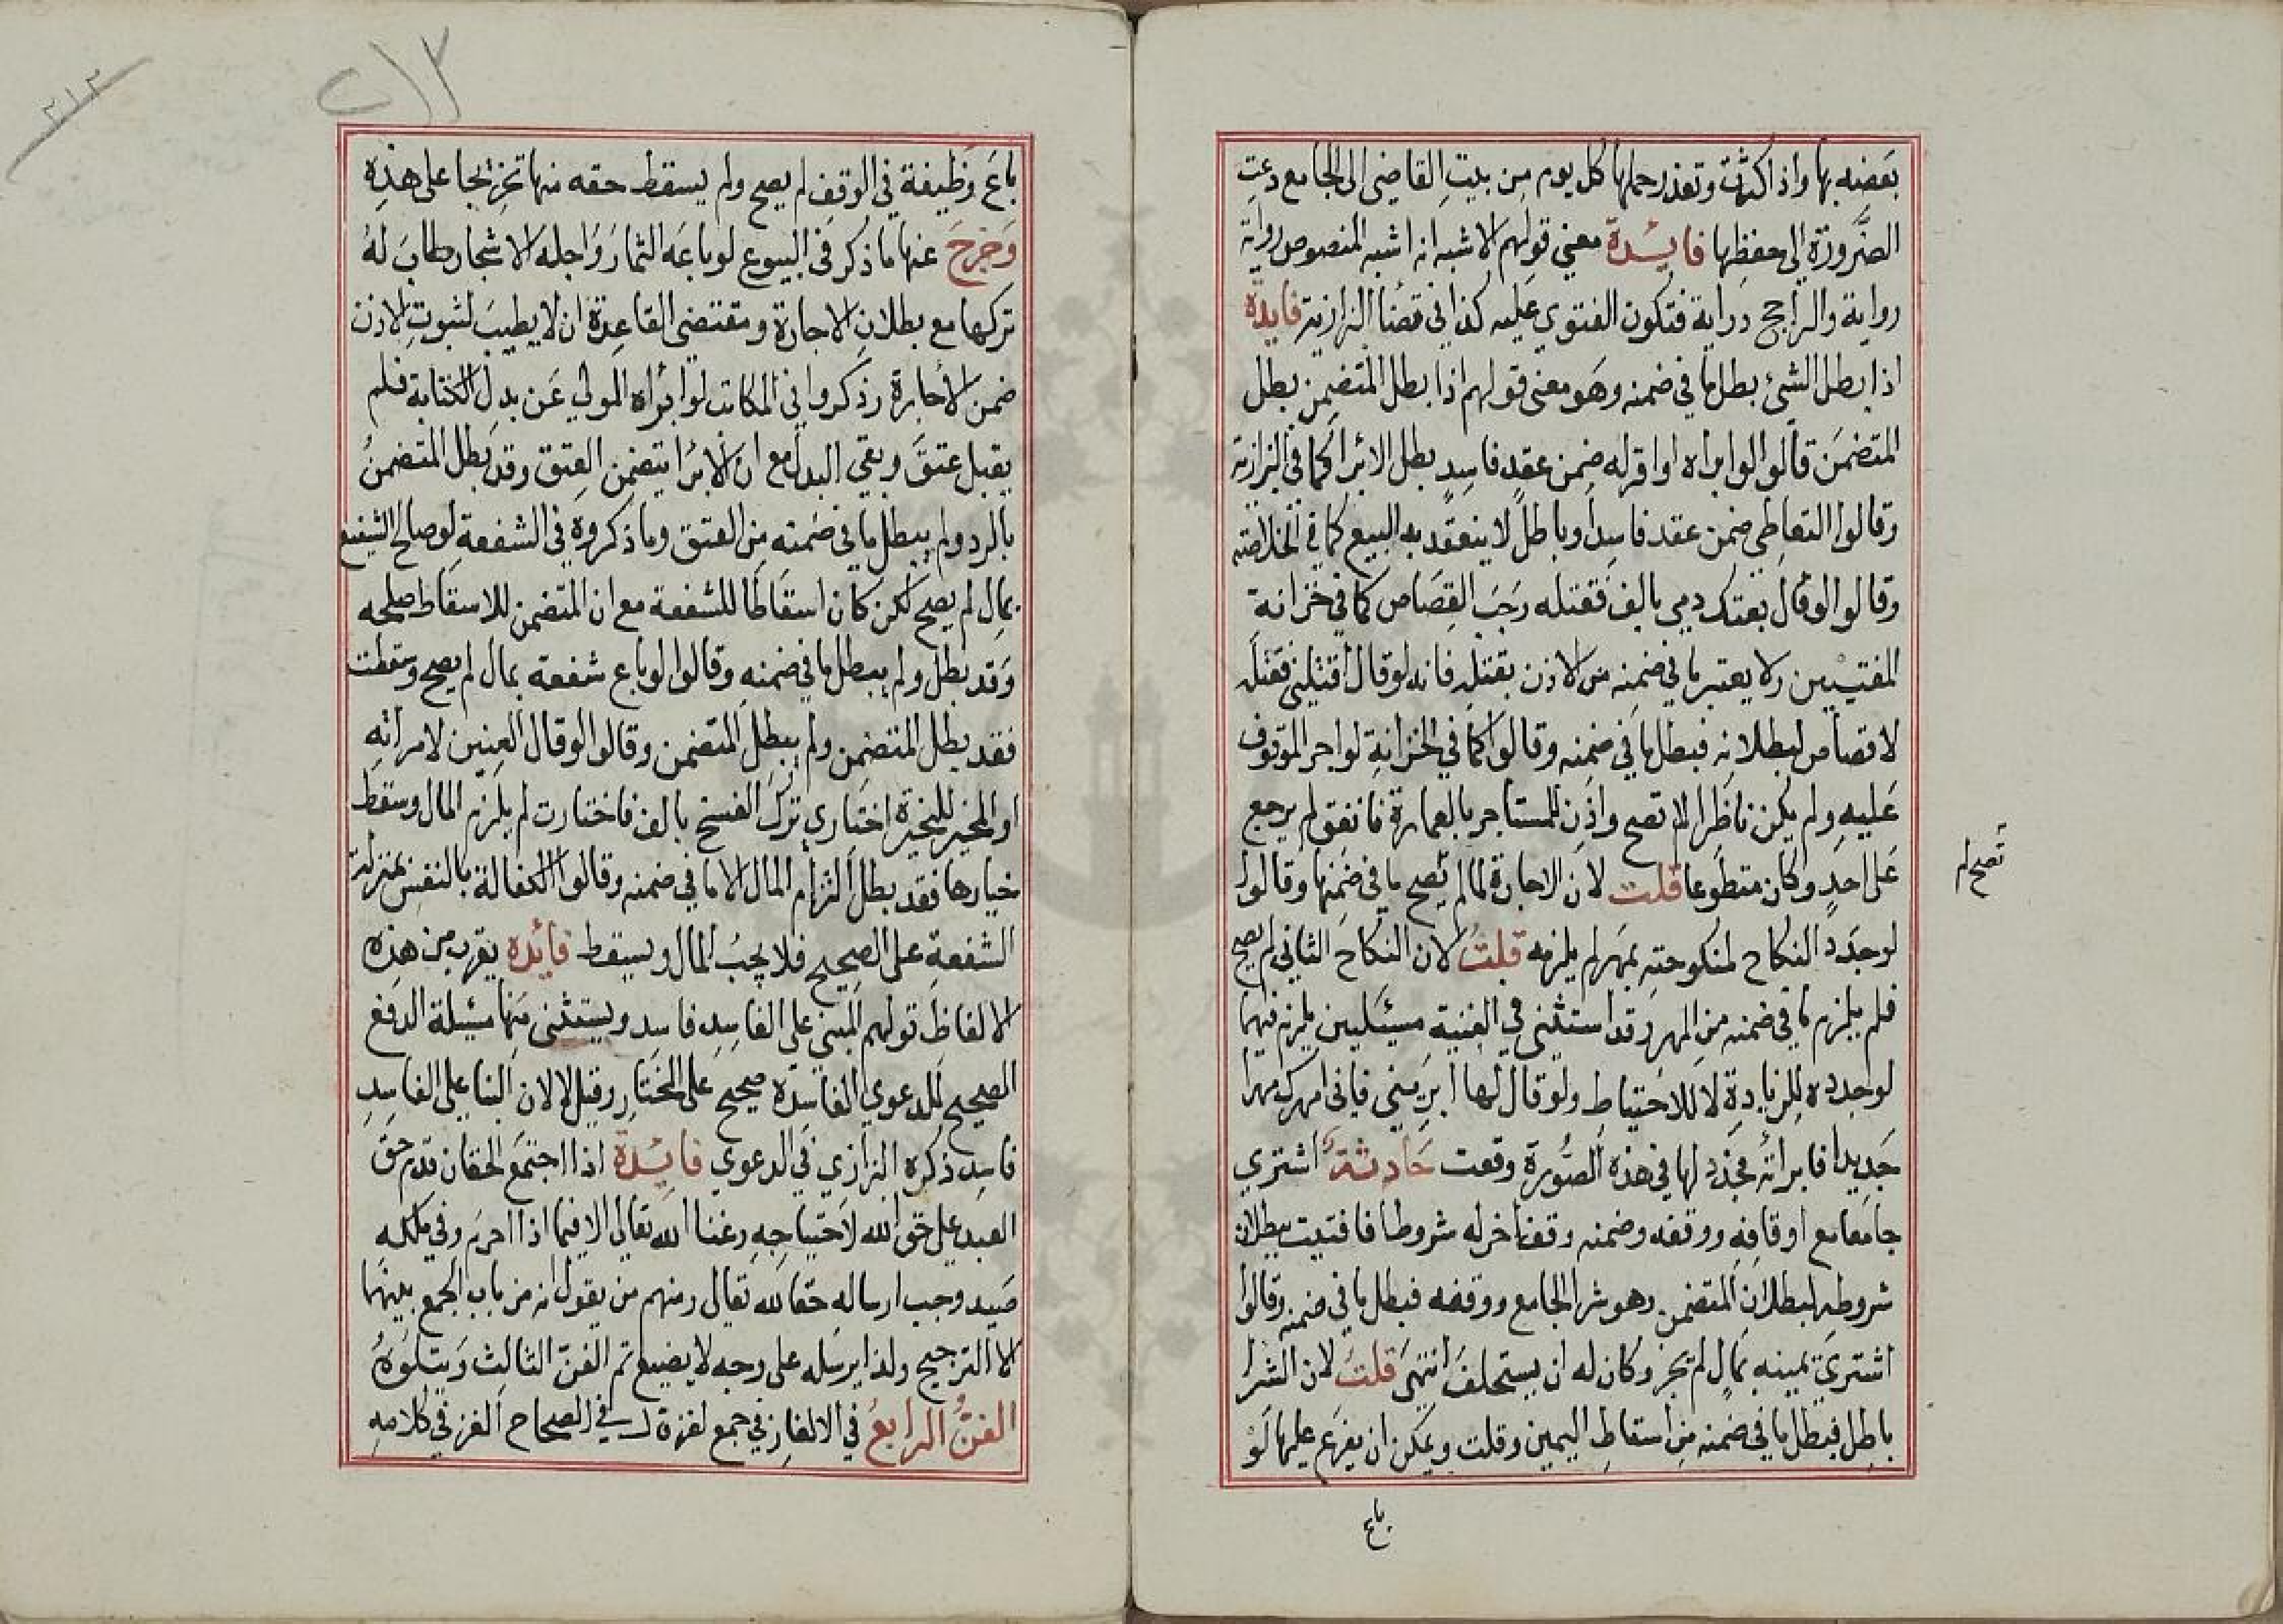 بعضه بها واذا كثرت وتعذر حملها كل يوم من بيت القاضي الى الجامع دعت
الضرورة الى حفظها فايدة معنى قولهم الاشبه انه اشبه المنصوص رواية
رواية والراجح دراية فتكون الفتوي عليه كذا في قضأ البزازية فايدة
اذا بطل الشئ بطل ما في ضمنه وهو معنى قولهم اذا بطل المتضمن بطل
المتضمن قالوا لوابراه او اقر له ضمن عقد فاسد بطل الابرأ كما في البزازية
وقالوا التعاطي ضمن عقد فاسد او باطل لا ينعقد به البيع كما في الخلاصة
وقالوا لوقال بعتك دمي بالف فقتله وجب القصاص كما في خزانة
المفتيين ولا يعتبر ما في ضمنه من الاذن بقتله فانه لوقال اقتلني فقتله
لا قصاص لبطلانه فبطل ما في ضمنه وقالوا كما في الخزانة لواجر الموقوف
عليه ولم يكن ناظرا لم تصح واذن للمستاجر بالعمارة فانفق لم يرجع
على احد وكان متطوعا قلت لان الاجارة لما لم تصح ما في ضمنها وقالوا
تصح لم
لوجدد النكاح لمنكوحته بمهر لم يلزمه قلت لان النكاح الثاني لم يصح
فلم يلزم ما في ضمنه من المهر وقد استثنى في القنية مسئلتين يلزم فيهما
لوجدده للزيادة لا للاحتياط ولوقال لها ابريني فاني امهرك مهرا
جديدا فابرأته فجدد لها في هذه الصورة وقعت حادثة اشتري
جامعا مع اوقافه ووقفه وضمنه وقفا اخر له شروطا فافتيت ببطلان
شروطه لبطلان المتضمن وهو شرا الجامع ووقفه فبطل ما في ضمنه وقالوا
اشترى يمينه بمال لم يجز وكان له ان يستحلف انتهى قلت لان الشرا
باطل فبطل ما في ضمنه من اسقاط اليمين وقلت ويمكن ان يفرع عليها لو
باع
٢١٢
٢١٢
باع وظيفة في الوقف لم يصح ولم يسقط حقه منها تخريجا على هذه
وخرج عنها ما ذكر في البيوع لو باعه الثمار واجله الاشجار طاب له
تركها مع بطلان الاجارة ومقتضى القاعدة ان لا يطيب لثبوت الاذن
ضمن الأجارة وذكروا في المكاتب لو ابراه المولي عن بدل الكتابة فلم
يقبل عتق وبقي البدل مع ان الابرا يتضمن العتق وقد بطل المتضمن
بالرد ولم يبطل ما في ضمنه من العتق وما ذكروه في الشفعة لو صالح الشفيع
بمال لم يصح لكن كان اسقاطا للشفعة مع ان المتضمن للاسقاط صلحه
وقد بطل ولم يبطل ما في ضمنه وقالوا لو باع شفعة بمال لم يصح وسقطت
فقد بطل المتضمن ولم يبطل المتضمن وقالوا لوقال العنين لامراته
او المخير للمخيرة اختاري ترك الفسخ بالف فاختارت لم يلزم المال وسقط
خيارها فقد بطل التزام المال الا ما في ضمنه وقالوا الكفالة بالنفس بمنزلة
الشفعة على الصحيح فلا يجب المال ويسقط فائده يقرب من هذه
الالفاظ قولهم المبني على الفاسد فاسد ويستثنى منها مسئلة الدفع
الصحيح للدعوي الفاسدة صحيح على المختار وقيل لا لان البنا على الفاسد
فاسد ذكره البزازي في الدعوي فايدة اذا اجتمع الحقان قدم حق
العبد على حق الله لاحتياجه وغنا الله تعالى الا فيما اذا احرم وفي ملكه
صيد وجب ارساله حقا لله تعالى ومنهم من يقول انه من باب الجمع بينهما
لا الترجيح ولذا يرسله على وجه لا يضيع تم الفن الثالث ويتلوه
الفن الرابع في الالغاز في جمع لغزة في الصحاح الغز في كلامه